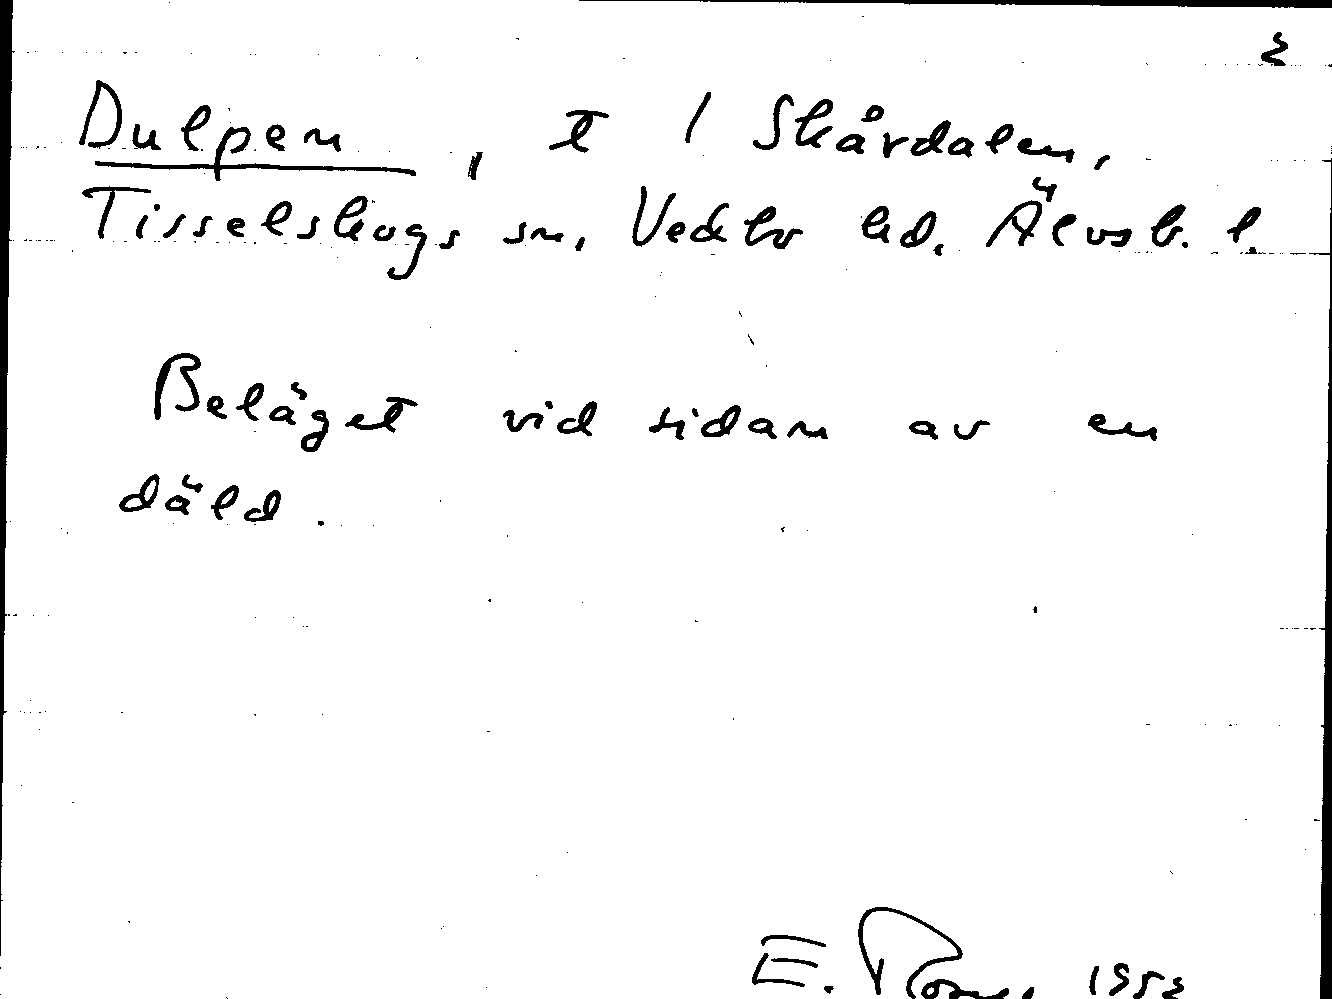 2
Dulpen, t / Skårdalen,
Tisselskogs sn, Vedbo hd. Älvsb. l.
Beläget vid sidan av en
däld.
E. 1952